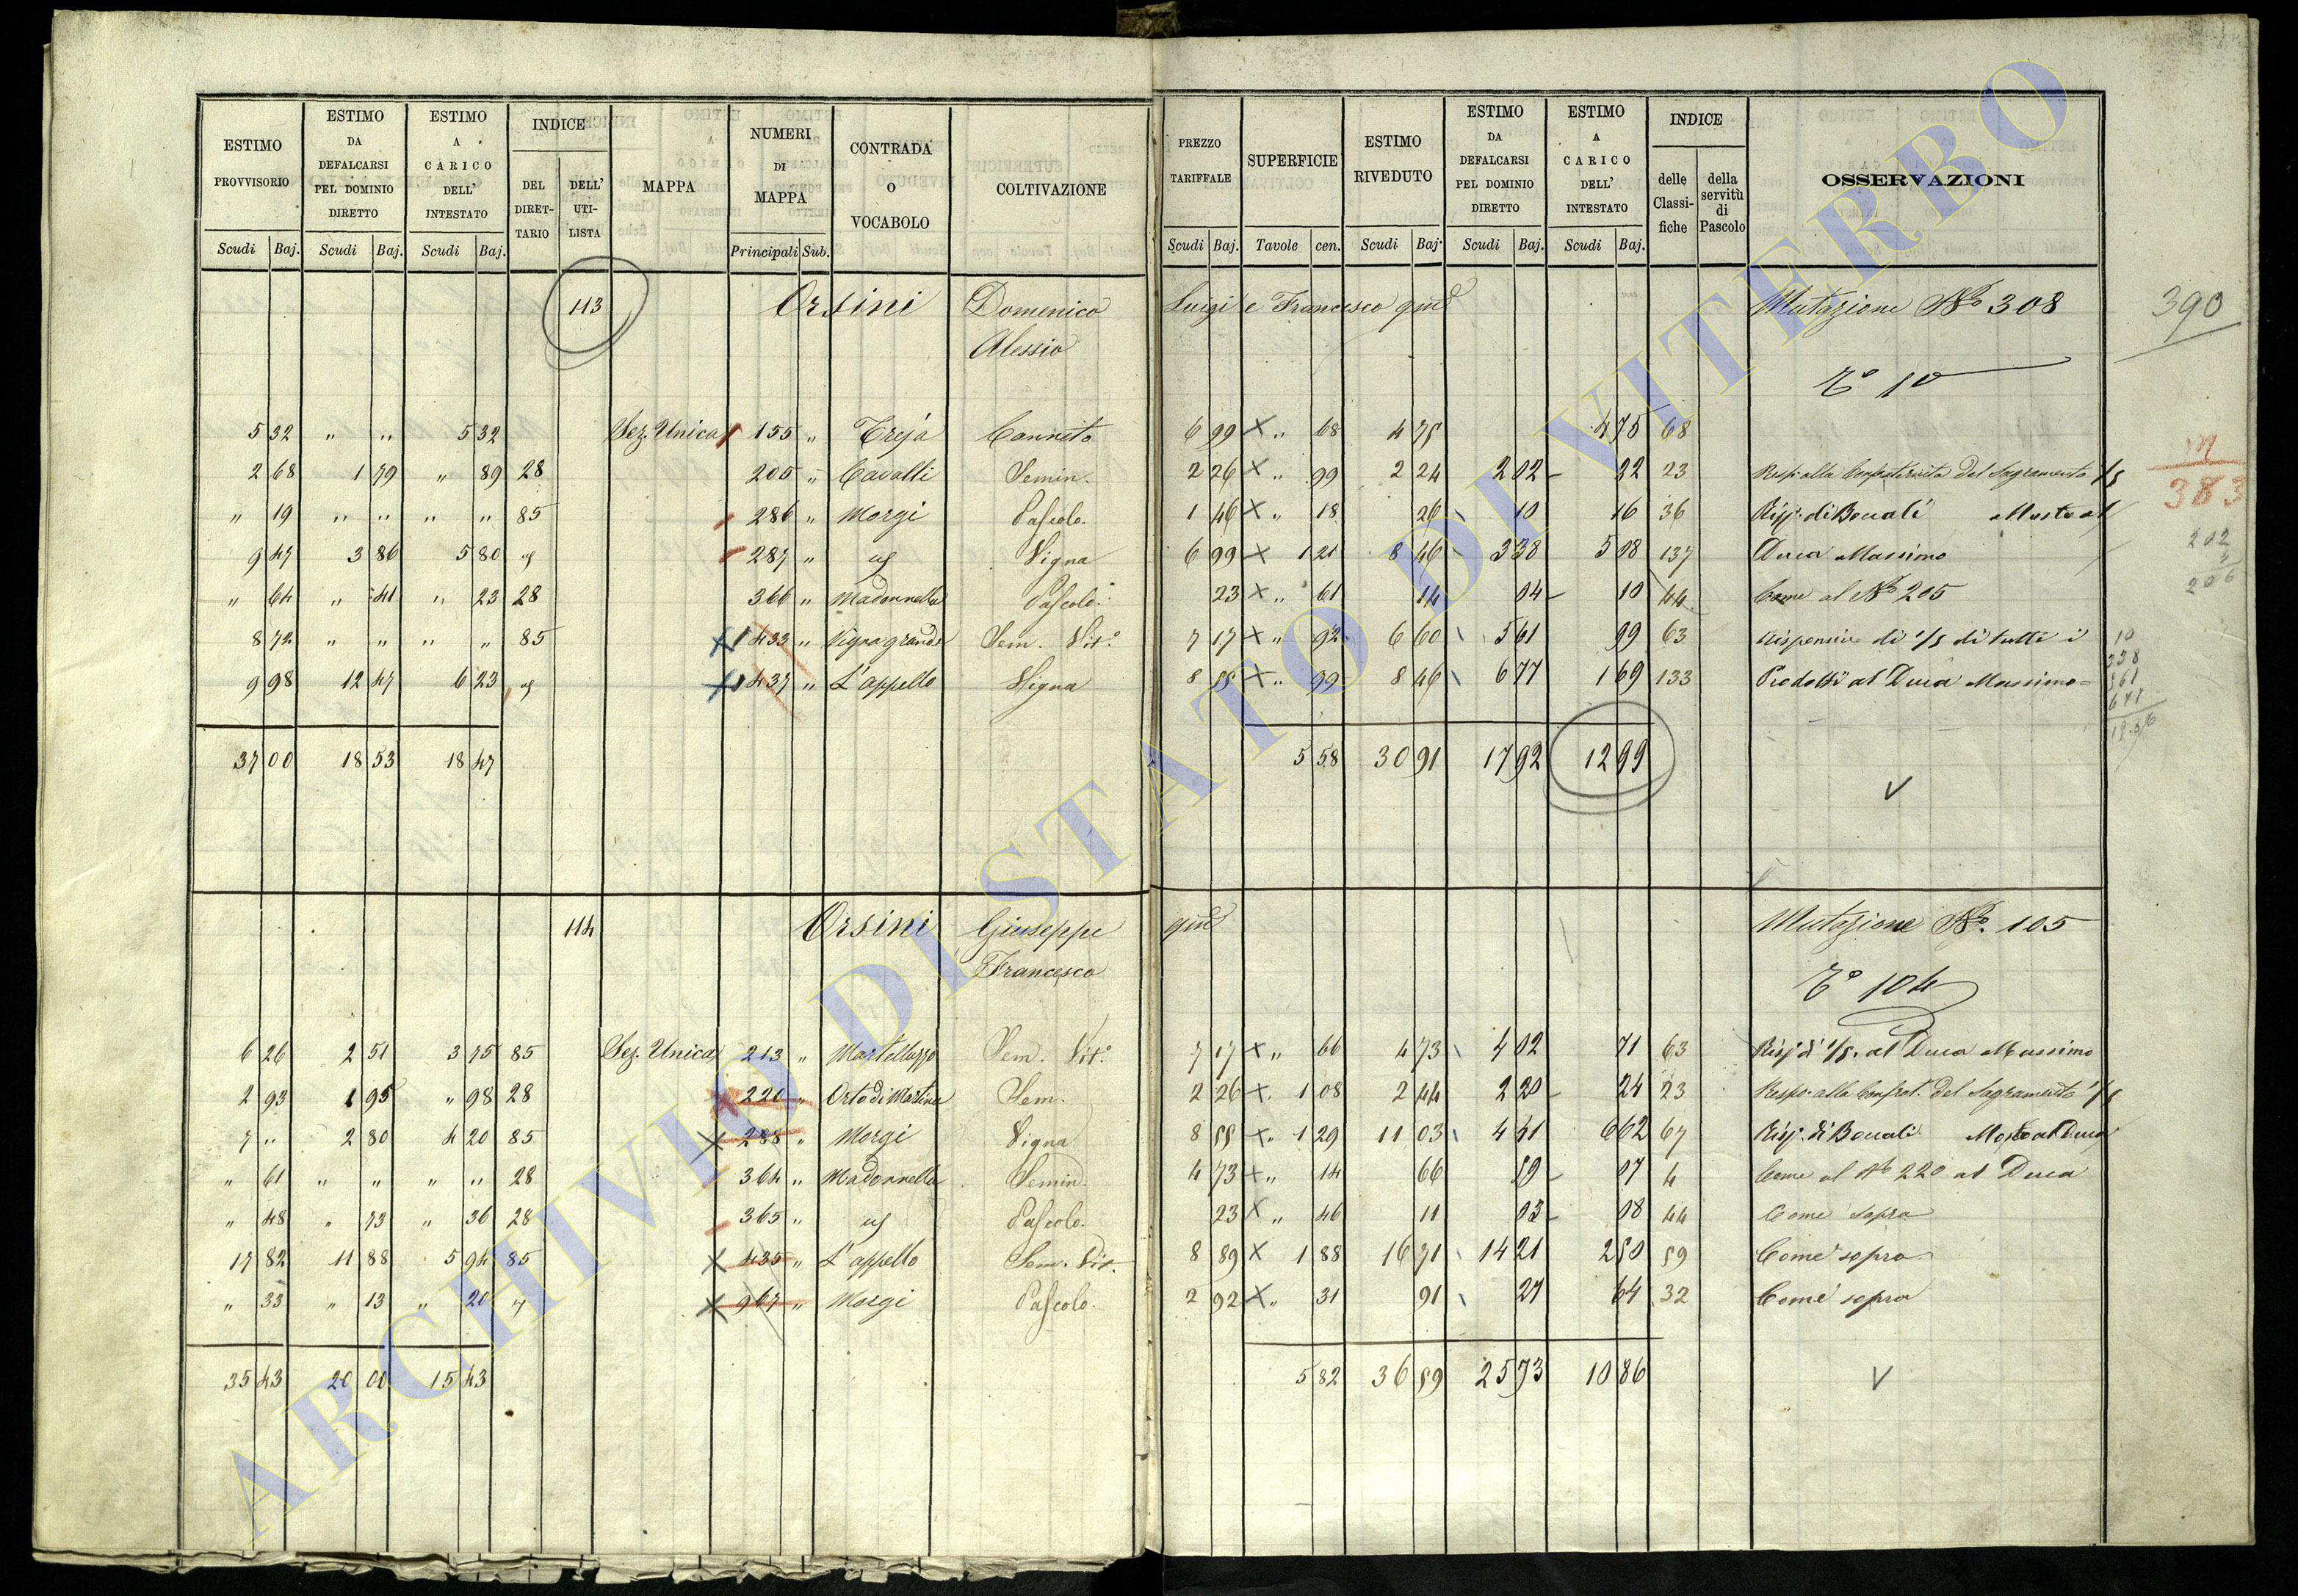 ESTIMO PROVVISORIO Scudi Baj. ESTIMO DA DEFALCARSI PEL DOMINIO DIRETTO Scudi Baj. ESTIMO A CARICO DELL' INTESTATO Scudi Baj. INDICE DEL DIRETTARIO DELL' UTILISTA MAPPA NUMERI DI MAPPA Principali Sub. CONTRADA O VOCABOLO COLTIVAZIONE PREZZO TARIFFALE Scudi Baj. SUPERFICIE Tavole cen. ESTIMO RIVEDUTO Scudi Baj. ESTIMO DA DEFALCARSI PEL DOMINIO DIRETTO Scudi Baj. ESTIMO A CARICO DELL' INTESTATO Scudi Baj. INDICE delle Classifiche della servitù di Pascolo OSSERVAZIONI
113 Orsini Domenico Luigi e Francesco qm Mutazione No 308 390
Alessio
To 10
5 32 " " 5 32 Sez. Unica 155 " Treja Canneto 6 99 X " 68 4 75 4 75 68
2 68 1 79 " 89 28 205 " Cavalli Semin. 2 26 X " 99 2 24 2 02 22 23 Risp. alla Confraternita del Sagramento 1/5
383
" 19 " " " " 85 286 " Morgi Pascolo. 1 46 X " 18 26 10 16 36 Risp. di Bocali Mosto al
202
9 47 3 86 5 80 287 " Vigna 6 99 X 1 21 8 46 3 38 5 08 137 Duca Massimo
4
206
" 64 " 41 " 23 28 366 " Madonnella Pascolo. 23 X " 61 14 04 10 44 Come al No 205
8 72 " " " " 85 433 " Vigna grande Sem. Vit.o 7 17 X " 92 6 60 5 61 99 63 Risponsiv di 1/5 di tutti i 10
9 98 12 47 6 23 437 " L'appello Vigna 8 55 X " 99 8 46 6 77 1 69 133 Prodotti al Duca Massimo
37 00 18 53 18 47 5 58 30 91 17 92 12 99
V
114 Orsini Giuseppe qm Mutazione No. 105
Francesco
To 104
6 26 2 51 3 75 85 Sez. Unica 213 " Martellazzo Sem. Vit.o 7 17 X " 66 4 73 4 02 71 63 Risp. di 1/5. al Duca Massimo
2 93 1 95 " 98 28 220 " Orto di Martina Sem. 2 26 X 1 08 2 44 2 20 24 23 Risp. alla Confrat. del Sagramento 1/5
7 " 2 80 4 20 85 288 " Morgi Vigna 8 55 X 1 29 11 03 4 41 6 62 67 Risp. di Bocali Mosto al Duca
" 61 " " " " 28 364 " Madonnella Semin. 4 73 X " 14 66 59 07 4 Come al No 220 al Duca
" 48 " 73 " 36 28 365 " Pascolo. 23 X " 46 11 03 08 44 Come sopra
17 82 11 88 5 94 85 435 " L'appello Sem. Vit. 8 89 X 1 88 16 71 14 21 2 50 59 Come sopra
" 33 " 13 " 20 967 " Morgi Pascolo. 2 92 X " 31 91 27 64 32 Come sopra
35 43 20 00 15 43 5 82 36 59 25 73 10 86
V
ARCHIVIO DI STATO DI VITERBO